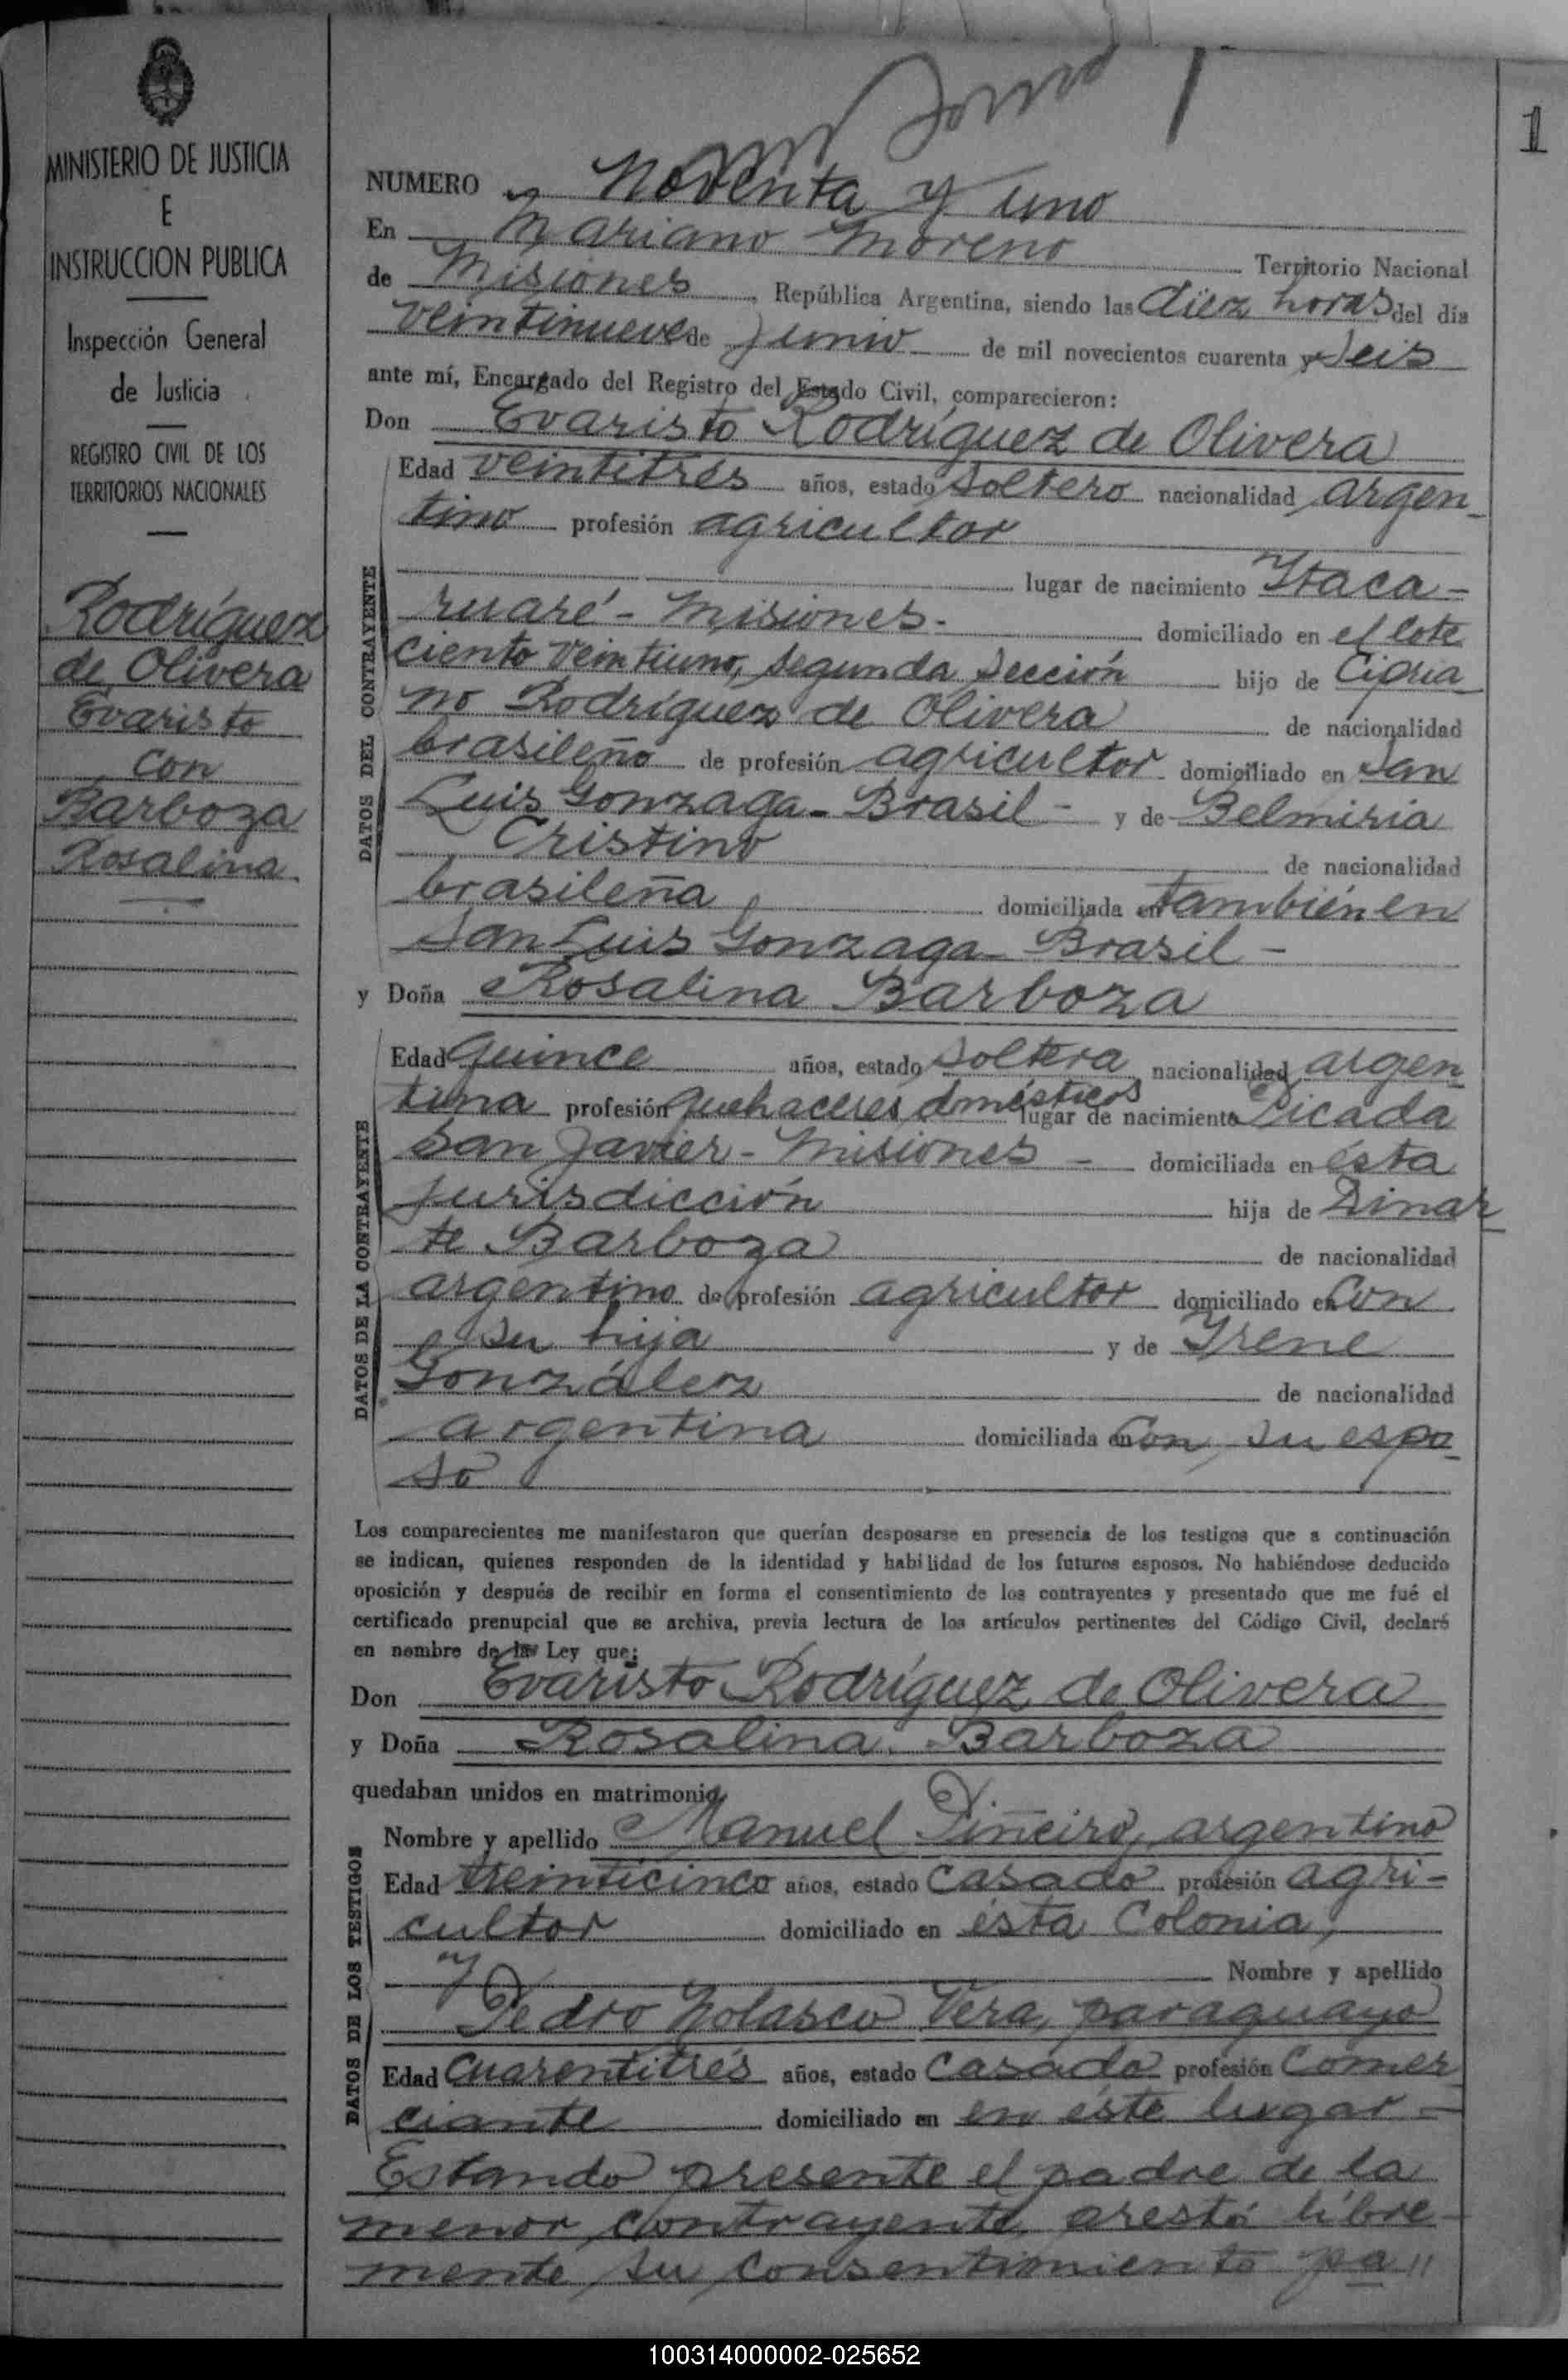 1
MINISTERIO DE JUSTICIA
E
INSTRUCCION PUBLICA
Inspección General
de Justicia
REGISTRO CIVIL DE LOS
TERRITORIOS NACIONALES
Rodríguez
de Olivera
Evaristo
con
Barboza
Rosalina
NUMERO noventa y uno
En Mariano Moreno Territorio Nacional
de Misiones, República Argentina, siendo las diez horas del día
veintinueve de Junio de mil novecientos cuarenta y seis
ante mí, Encargado del Registro del Estado Civil, comparecieron:
Don Evaristo Rodríguez de Olivera
DATOS DEL CONTRAYENTE
Edad veintitrés años, estado soltero nacionalidad argen-
tino profesión agricultor
lugar de nacimiento Itaca-
ruaré - Misiones - domiciliado en el lote
ciento veintiuno, segunda sección hijo de Cipria-
no Rodríguez de Olivera de nacionalidad
brasileño de profesión agricultor domiciliado en San
Luis Gonzaga - Brasil - y de Belmiria
Cristino de nacionalidad
brasileña domiciliada en también en
San Luis Gonzaga - Brasil -
y Doña Rosalina Barboza
DATOS DE LA CONTRAYENTE
Edad quince años, estado soltera nacionalidad argen-
tina profesión quehaceres dmésticos lugar de nacimiento Picada
San Javier - Misiones - domiciliada en ésta
jurisdicción hija de Dinar
te Barboza de nacionalidad
argentino de profesión agricultor domiciliado en con
su hija y de Irene
González de nacionalidad
argentina domiciliada en con su espo-
so
Los comparecientes me manifestaron que querían desposarse en presencia de los testigos que a continuación
se indican, quienes responden de la identidad y habilidad de los futuros esposos. No habiéndose deducido
oposición y después de recibir en forma el consentimiento de los contrayentes y presentado que me fué el
certificado prenupcial que se archiva, previa lectura de los artículos pertinentes del Código Civil, declaré
en nombre de la Ley que:
Don Evaristo Rodríguez de Olivera
y Doña Rosalina Barboza
quedaban unidos en matrimonio.
DATOS DE LOS TESTIGOS
Nombre y apellido Manuel Piñeiro, argentino
Edad treinticinco años, estado casado profesión agri-
cultor domiciliado en ésta Colonia,
y Nombre y apellido
Pedro Nolasco Vera, paraguayo
Edad cuarentitrés años, estado casado profesión comer
ciante domiciliado en en éste lugar -
Estando presente el padre de la
menor contrayente, prestó libre-
mente su consentimiento pa//
100314000002-025652